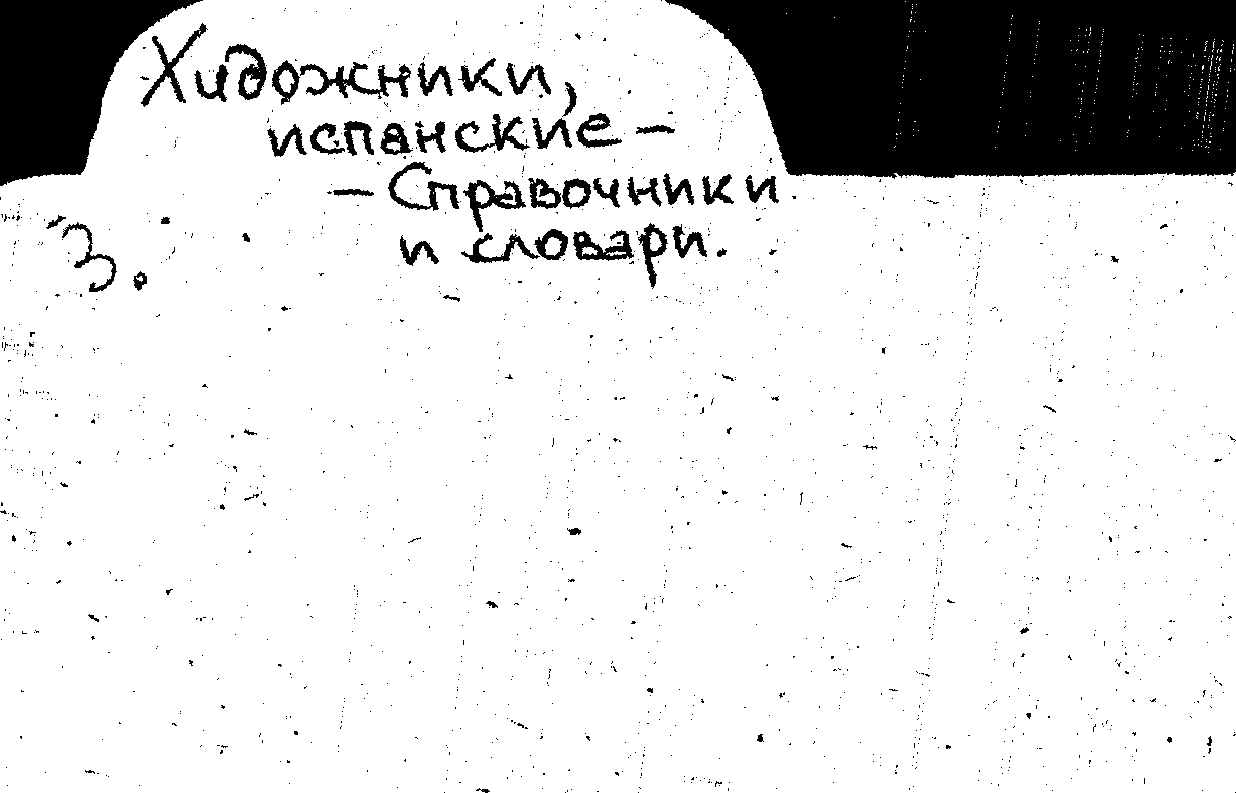 Художники,
испанские –
– Справочники
и словари.
3.